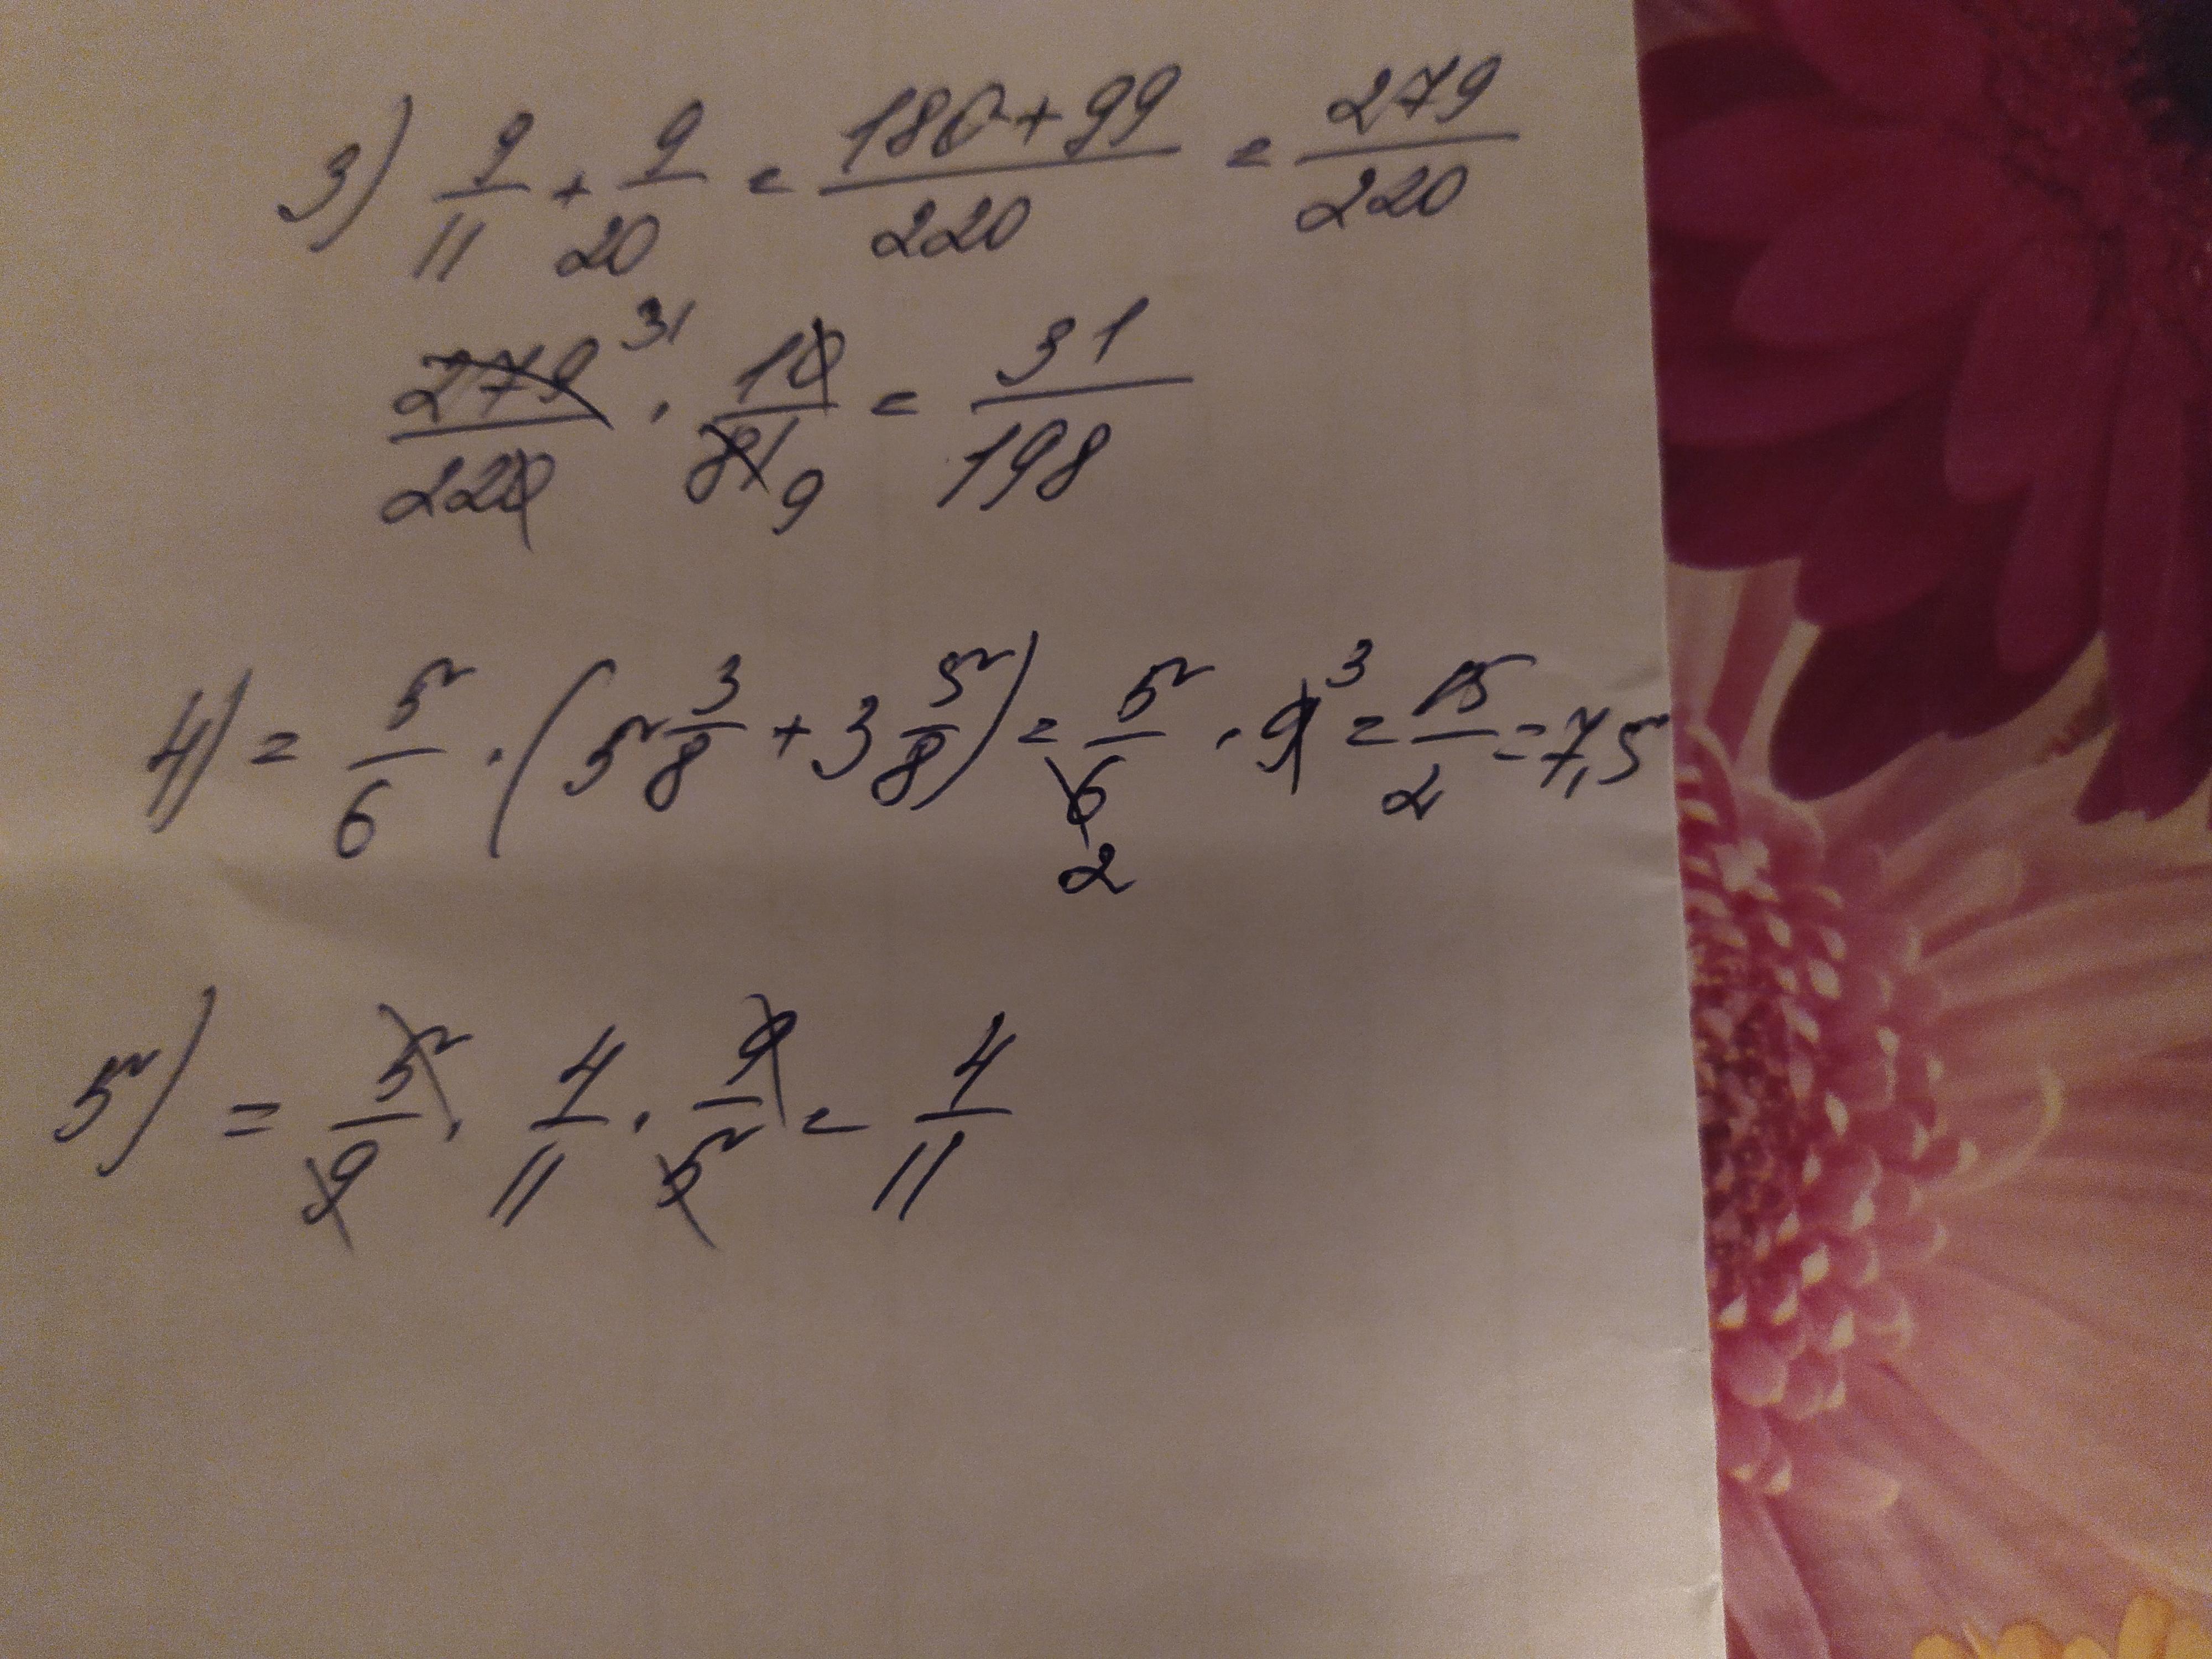 3) 9/11 + 9/20 = 180+99/220 = 279/220
279/220 31 · 10/81 9 = 31/198
4) = 5/6 · (5 3/8 + 3 5/8) = 5/6 2 · 9 3 = 15/2 = 7,5
5) = 5/9 · 4/11 · 9/5 = 4/11